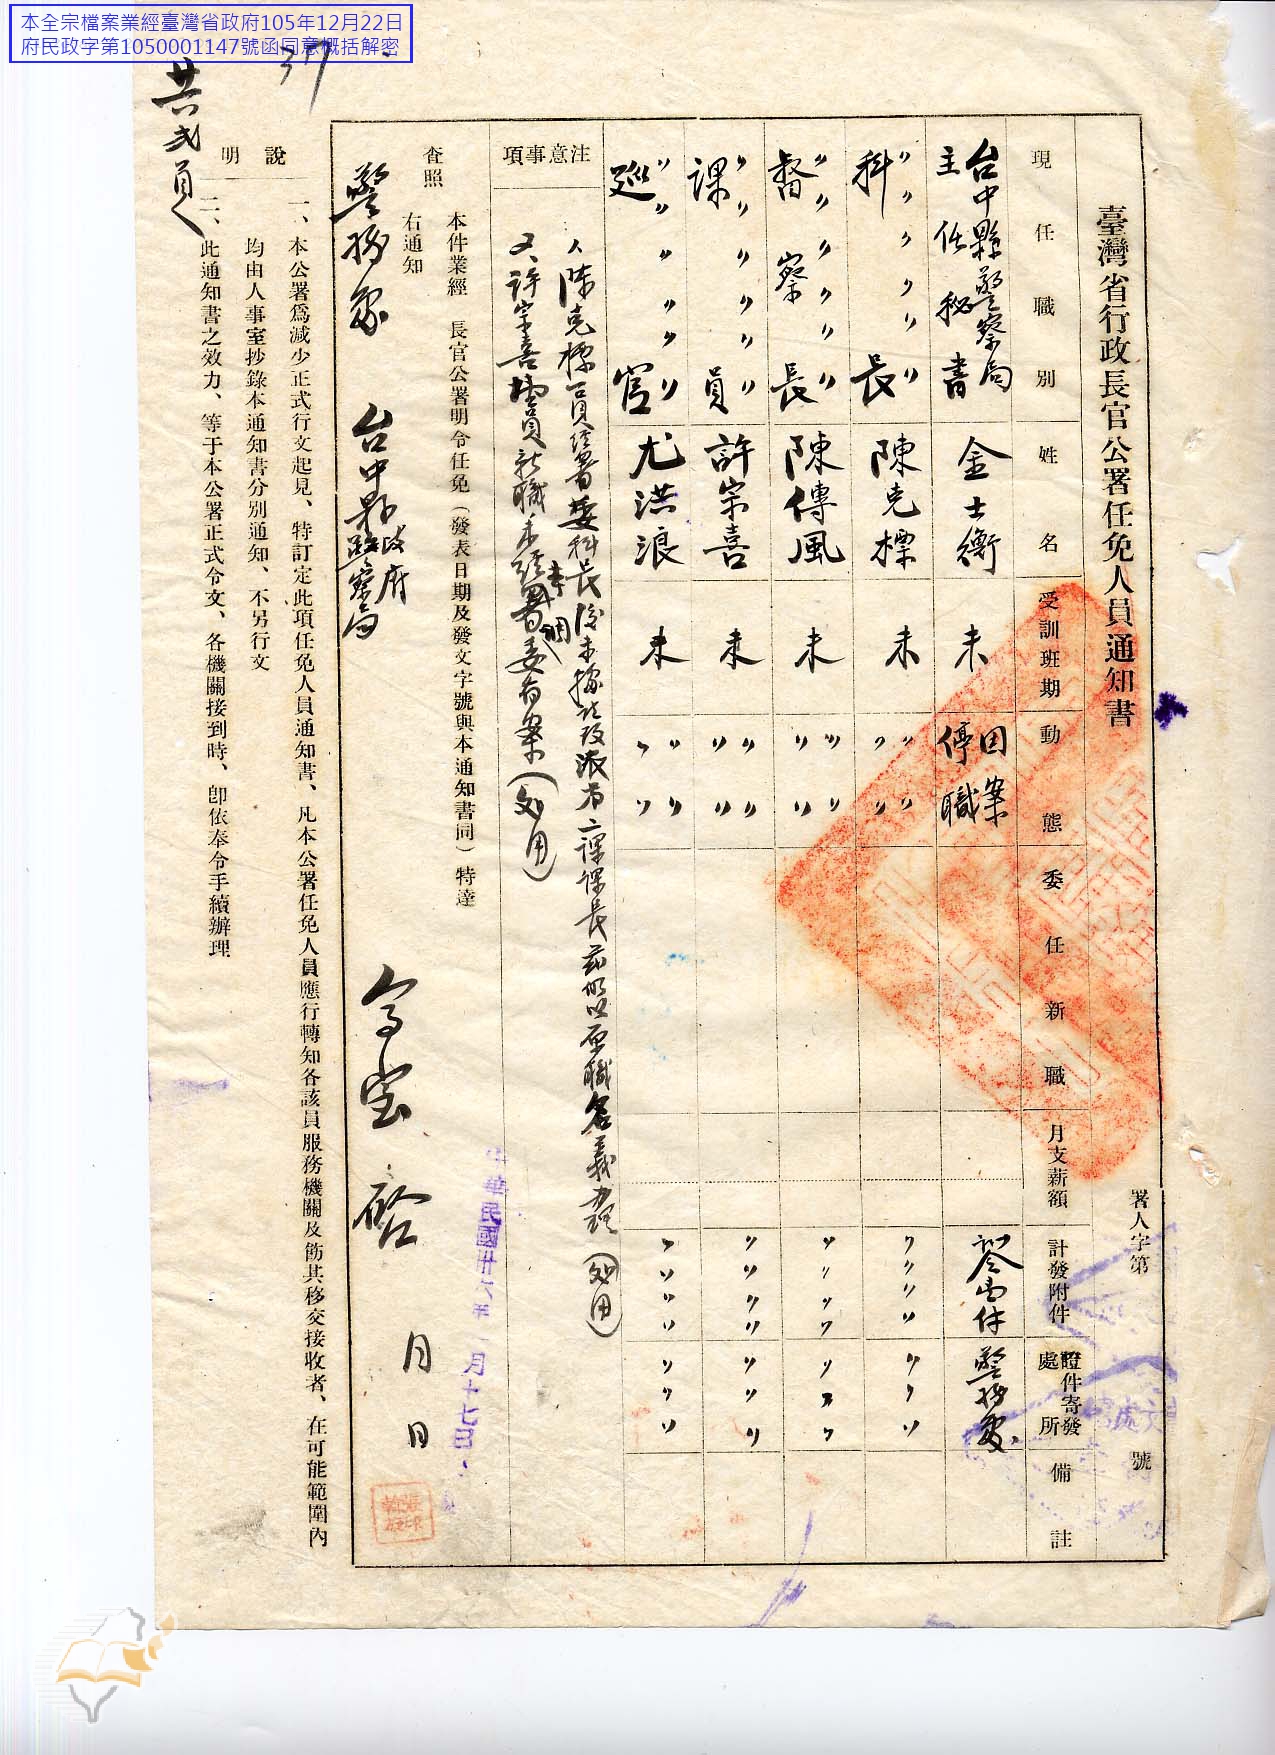 本全宗檔案業經臺灣省政府105年12月22日
府民政字第1050001147號函同意概括解密
臺灣省行政長官公署任免人員通知書
署人字第 號
現任職別 姓名 受訓班期 動態 委任新職 月支薪額 計發附件 證件寄發處所 備註
台中縣警察局主任秘書 金士衡 未 因案停職 警務處
〃〃〃〃〃科長 陳克標 未 〃〃〃〃
〃〃〃〃〃督察長 陳傳風 未 〃〃〃〃
〃〃〃〃〃課員 許宗喜 未 〃〃〃〃
〃〃〃〃〃巡官 尤洪浪 未 〃〃〃〃
注意事項
陳克標一員經署委科長後未據改派為二課課長茲仍以原職名義辦理
許宗喜一員就職未經署委有案
查照
本件業經 長官公署明令任免（發表日期及發文字號與本通知書同）特達
右通知
警務處 台中縣政府 警察局
月 日
中華民國卅六年一月十七日
說明
一、本公署爲減少正式行文起見、特訂定此項任免人員通知書、凡本公署任免人員應行轉知各該員服務機關及飭其移交接收者、在可能範圍內
均由人事室抄錄本通知書分別通知、不另行文
二、此通知書之效力、等于本公署正式令文、各機關接到時、卽依奉令手續辦理
共弍頁